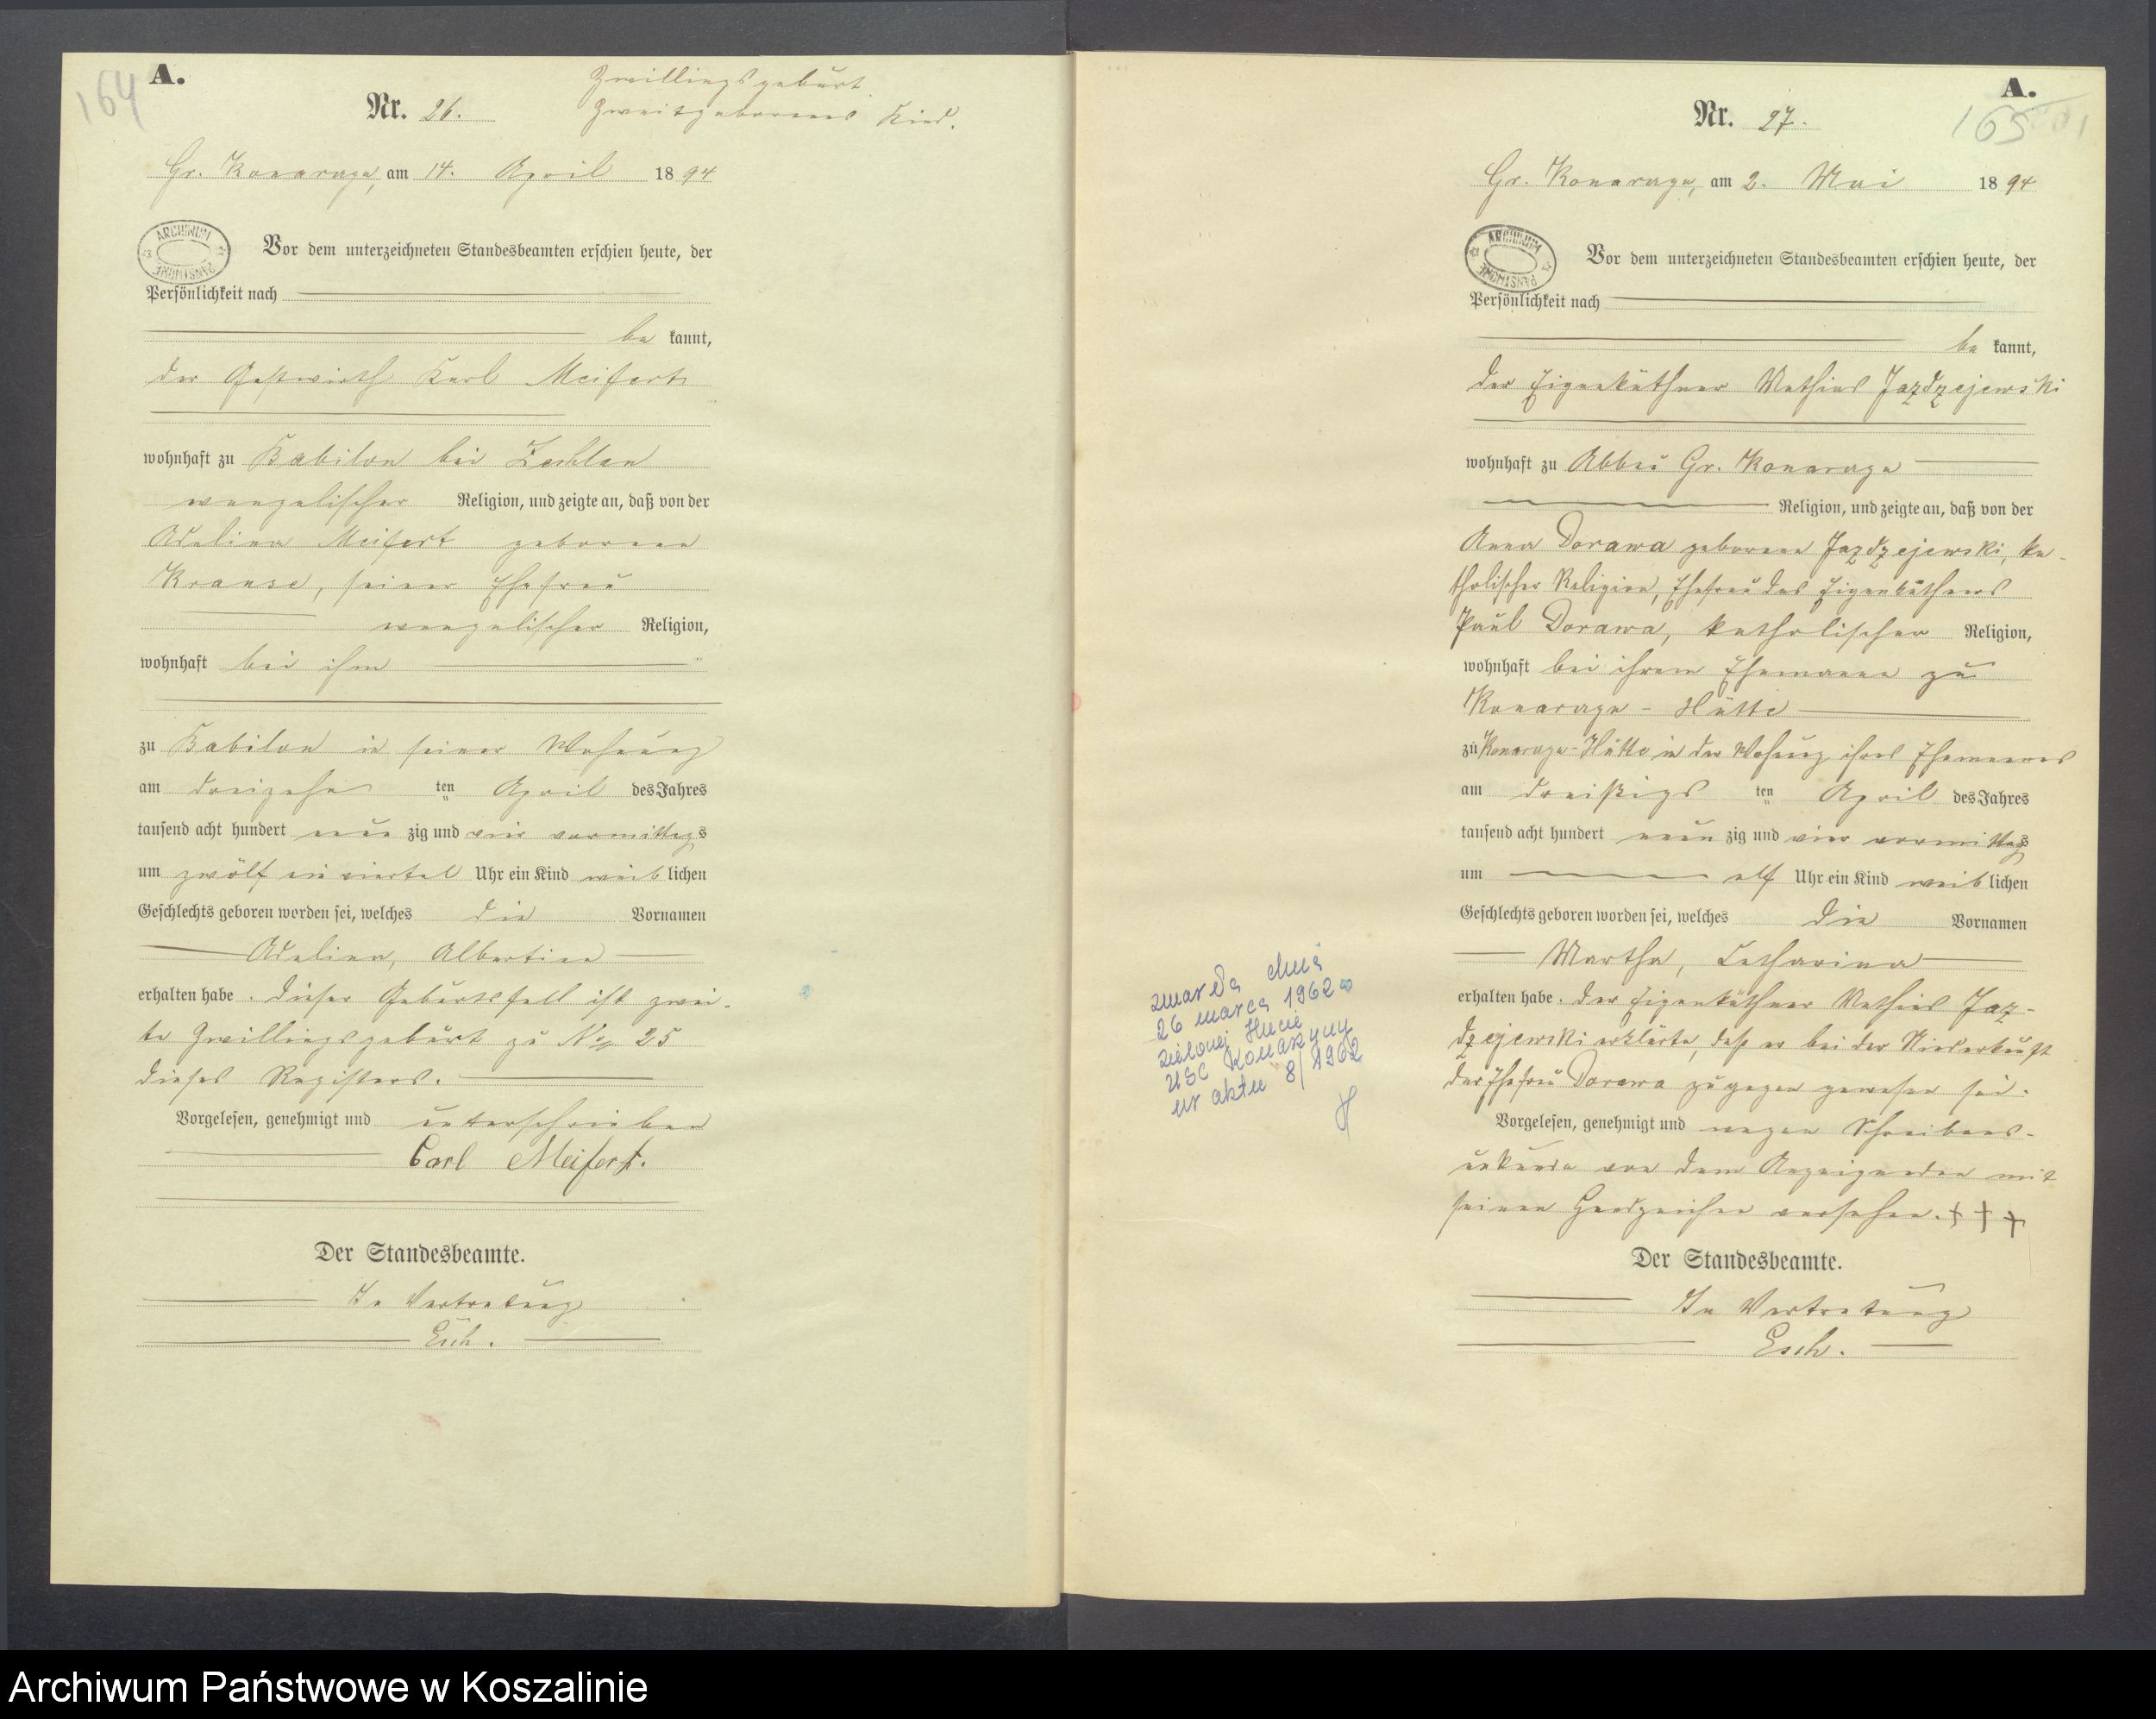 164
A.
Zwillingsgeburt.
Nr. 26.
Zweitgeborenes Kind.
Gr. Konarczyn, am 14. April 1894
ARCHIWUM PAŃSTWOWE
Vor dem unterzeichneten Standesbeamten erschien heute, der
Persönlichkeit nach
be kannt,
der Gastwirth Karl Meifert
wohnhaft zu Babilon bei
evangelischer Religion, und zeigte an, daß von der
Adeline Meifert geborene
Krause, seiner Ehefrau
evangelischer Religion,
wohnhaft bei ihm
zu Babilon in seiner Wohnung
am dreizehn ten April des Jahres
tausend acht hundert neun zig und vier vormittags
um zwölf ein viertel Uhr ein Kind weib lichen
Geschlechts geboren worden sei, welches die Vornamen
Adeline, Albertine
erhalten habe. Dieser Geburtsfall ist zwei-
te Zwillingsgeburt zu No 25
dieses Registers.
Vorgelesen, genehmigt und unterschrieben
Carl Meifert.
Der Standesbeamte.
In Vertretung
Esch.
A.
165
Nr. 27.
Gr. Konarczyn, am 2. Mai 1894
ARCHIWUM PAŃSTWOWE
Vor dem unterzeichneten Standesbeamten erschien heute, der
Persönlichkeit nach
be kannt,
der Eigenkäthner Mathias Jazdzejewski
wohnhaft zu Abbau Gr. Konarczyn
Religion, und zeigte an, daß von der
Anna Dorawa geborene Jazdzejewski, ka-
tholischer Religion, Ehefrau des Eigenkäthners
Paul Dorawa, katholischer Religion,
wohnhaft bei ihrem Ehemanne zu
Konarczyn-Hütte
zu Konarczyn-Hütte in der Wohnung ihres Ehemannes
am dreißigs ten April des Jahres
tausend acht hundert neun zig und vier vormittags
um elf Uhr ein Kind weib lichen
Geschlechts geboren worden sei, welches die Vornamen
Martha, Catharina
erhalten habe. Der Eigenkäthner Mathias Jaz-
dzejewski erklärte, daß er bei der Niederkunft
der Ehefrau Dorawa zugegen gewesen sei.
Vorgelesen, genehmigt und wegen Schreibens-
unkunde von dem Anzeigenden mit
seinem Handzeichen versehen. + + +
Der Standesbeamte.
In Vertretung
Esch.
zmarła dnia
26 marca 1962 w
Zielonej Hucie
USC Konarzyny
nr aktu 8/1962
Archiwum Państwowe w Koszalinie